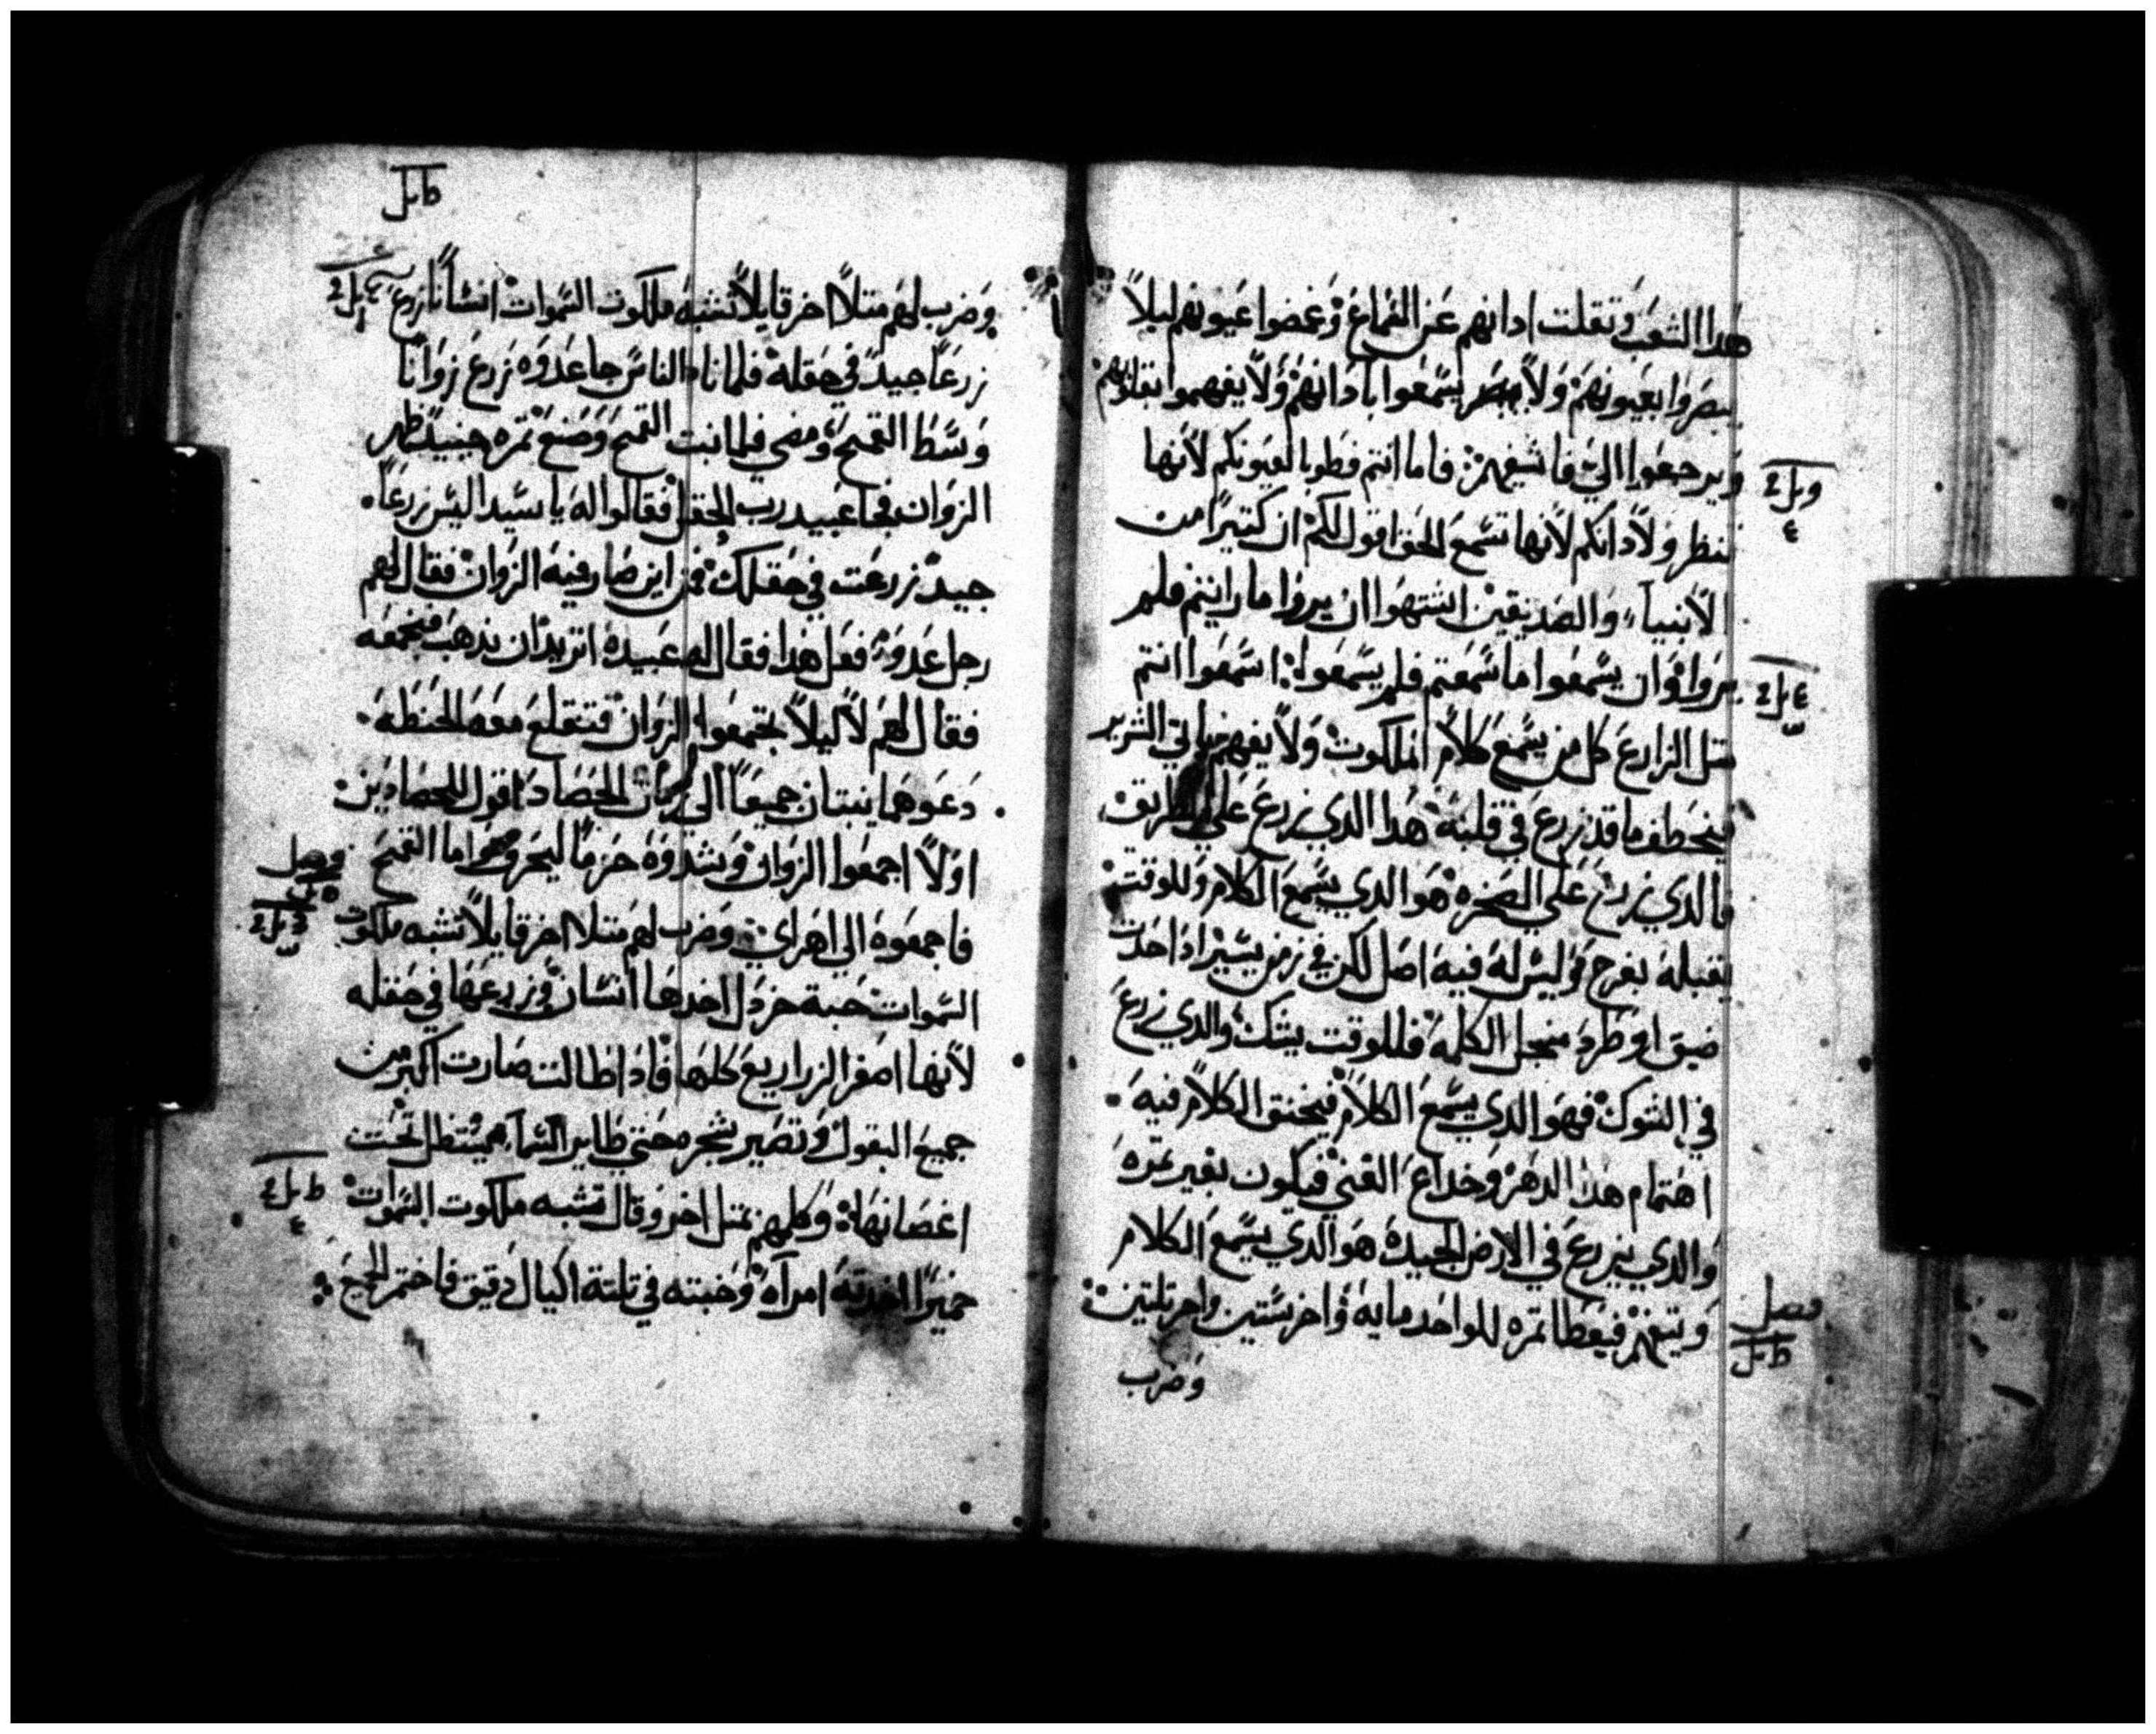 هدا الشعب وتقلت ادانهم عن السماع وغمضوا عيونهم ليلاً
يبصروا بعيونهم ولا يسمعوا بادانهم ولا يفهموا بقلوبهم
ويرجعوا الي فاشفيهم فاما انتم فطوبا لعيونكم لانها
تنظر ولادانكم لانها تسمع الحق اقول لكم ان كتيرًا من
الانبياء والصديقين اشتهوا ان يروا ما رايتم فلم
يروا وان يسمعوا ما سمعتم فلم يسمعوا اسمعوا انتم
متل الزارع كل من يسمع كلام الملكوت ولا يفهم ياتي الشرير
فيخطف ما قد زرع في قلبه هدا الدي زرع علي الطريق
فالدي زرع علي الصخره هو الدي يسمع الكلام وللوقت
يقبله بفرح وليس له فيه اصل لكن في زمن يسير ادا حدت
ضيق او طرد من اجل الكلمة فللوقت يشك والدي زرع
في الشوك فهو الدي يسمع الكلام فيخنق الكلام فيه
اهتمام هدا الدهر وخداع الغني فيكون بغير تمره
والدي يزرع في الارض الجيدة هو الدي يسمع الكلام
ويتفهم فيعطا تمره للواحد مايه واخر ستين واخر تلتين
فصل
وضرب
وضرب لهم متلاً اخر قايلاً تشبه ملكوت السموات انسانًا زرع
زرعًا جيد في حقله فلما نام الناس جا عدوه زرع زوانًا
وسط القمح ومضي فلما نبت القمح وصنع تمره حينيد ظهر
الزوان فجا عبيد رب الحقل فقالوا له يا سيد اليس زرعًا
جيد زرعت في حقلك فمن اين صار فيه الزوان فقال لهم
رجل عدو فعل هدا فقال له عبيده اتريد ان ندهب فنجمعه
فقال لهم لا ليلاً تجمعوا الزوان فتنقلع معه الحنطه
دعوهما ينبتان جميعًا الي زمان الحصاد اقول للحصادين
اولاً اجمعوا الزوان وشدوه حزمًا ليحرق واما القمح
فصل
فاجمعوه الي اهراي وضرب لهم متلا اخر قايلاً تشبه ملكوت
السموات حبة خردل اخدها انسان وزرعها في حقله
لانها اصغر الزراريع كلها فادا طالت صارت اكبر من
جميع البقول وتصير شجره حتي طاير السما يستظل تحت
اغصانها وكلمهم بمتل اخر وقال تشبه ملكوت السموات
خميرًا اخدته امراه وخبته في تلتة اكيال دقيق فاختمر الجميع